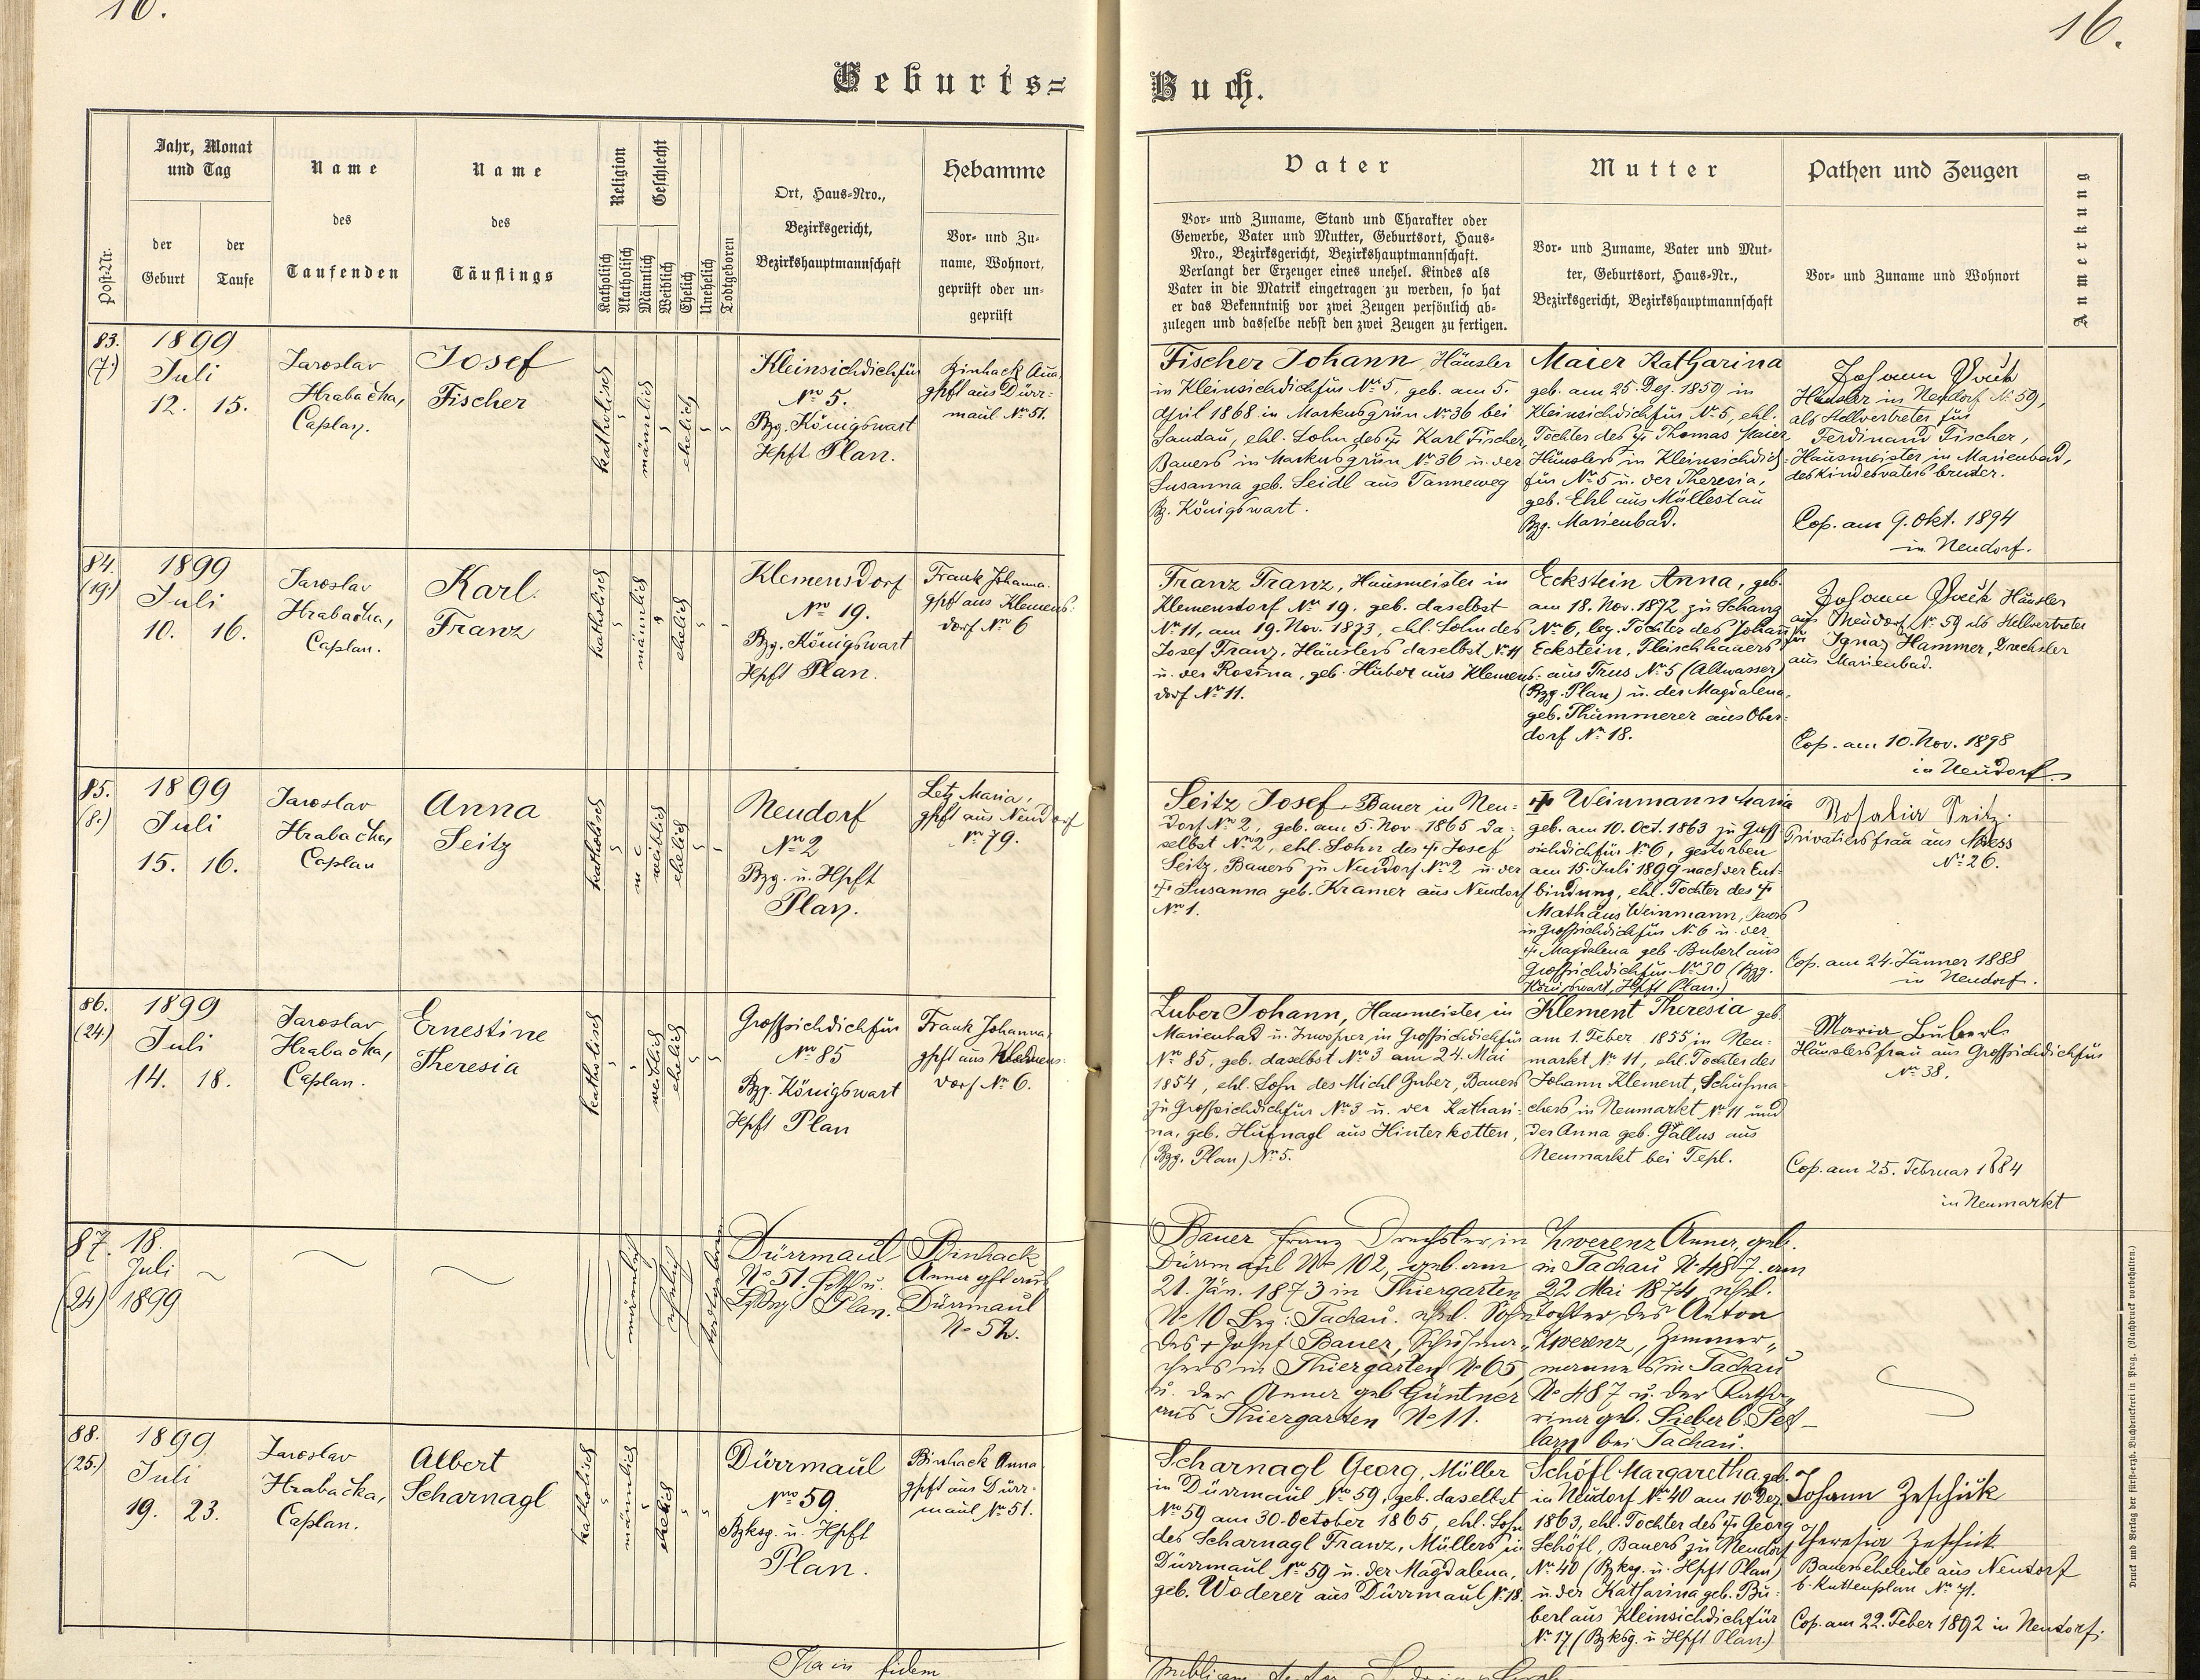 16.
16.
Geburts=
Buch.
Post-Nr.
Jahr, Monat
und Tag
der
Geburt
der
Taufe
Name
des
Taufenden
Name
des
Täuflings
Religion
Katholisch
Akatholisch
Geschlecht
Männlich
Weiblich
Ehelich
Unehelich
Todtgeboren
Ort, Haus-Nro.,
Bezirksgericht,
Bezirkshauptmannschaft
Hebamme
Vor- und Zu-
name, Wohnort,
geprüft oder un-
geprüft
Vater
Vor- und Zuname, Stand und Charakter oder
Gewerbe, Vater und Mutter, Geburtsort, Haus-
Nro., Bezirksgericht, Bezirkshauptmannschaft.
Verlangt der Erzeuger eines unehel. Kindes als
Vater in die Matrik eingetragen zu werden, so hat
er das Bekenntniß vor zwei Zeugen persönlich ab-
zulegen und dasselbe nebst den zwei Zeugen zu fertigen.
Mutter
Vor- und Zuname, Vater und Mut-
ter, Geburtsort, Haus-Nr.,
Bezirksgericht, Bezirkshauptmannschaft
Pathen und Zeugen
Vor- und Zuname und Wohnort
Anmerkung
83.
(7.)
1899
Juli
12. 15.
Jaroslav
Hrabačka,
Caplan.
Josef
Fischer
katholisch
männlich
ehelich
Kleinsichdichfür
Nro 5.
Bzg. Königswart
Hpft Plan.
Binhack Anna
gpft aus Dürr-
maul No 51.
Fischer Johann, Häusler
in Kleinsichdichfür No 5, geb. am 5.
April 1868 in Markusgrün No 36 bei
Sandau, ehl. Sohn des † Karl Fischer,
Bauers in Markusgrün No 36 u. der
Susanna geb. Seidl aus Tanneweg
Bz. Königswart.
Maier Katharina
geb. am 25. Dez. 1859 in
Kleinsichdichfür No 5, ehl.
Tochter des † Thomas Maier,
Häuslers in Kleinsichdich-
für No 5 u. der Theresia,
geb. Ehl aus Müllestau
Bzg. Marienbad.
Johann
Häusler in Neudorf No 59,
als Stellvertreter für
Ferdinand Fischer,
Hausmeister in Marienbad,
des Kindesvaters bruder.
Cop. am 9. Okt. 1894
in Neudorf.
84.
(19.)
1899
Juli
10. 16.
Jaroslav
Hrabačka,
Caplan.
Karl
Franz
katholisch
männlich
ehelich
Klemensdorf
Nro 19.
Bzg. Königswart
Hpft Plan.
Frank Johanna
gpft aus Klemens-
dorf No 6
Franz Franz, Hausmeister in
Klemensdorf No 19, geb. daselbst
No 11, am 19. Nov. 1873, ehl. Sohn des
Josef Franz, Häuslers daselbst No 11
u. der Rosina, geb. Huber aus Klemens-
dorf No 11.
Eckstein Anna, geb.
am 18. Nov. 1872 zu Schanz
No 6, leg. Tochter des Johann
Eckstein, Fleischhauers
aus Trus No 5 (Altwasser)
(Bzg. Plan) u. der Magdalena,
geb. Thummerer aus Ober-
dorf No 18.
Johann Häusler
aus Neudorf No 59 als Stellvertreter
für Ignaz Hammer, Drechsler
aus Marienbad.
Cop. am 10. Nov. 1898
in Neudorf.
85.
(8.)
1899
Juli
15. 16.
Jaroslav
Hrabačka,
Caplan
Anna
Seitz
katholisch
weiblich
ehelich
Neudorf
No 2
Bzg. u. Hpft
Plan.
Letz Maria,
gpft aus Neudorf
No 79.
Seitz Josef, Bauer in Neu-
dorf No 2, geb. am 5. Nov. 1865 da-
selbst No 2, ehl. Sohn des † Josef
Seitz, Bauers zu Neudorf No 2 u. der
† Susanna geb. Kramer aus Neudorf
No 1.
† Weinmann Maria
geb. am 10. Oct. 1863 zu Groß-
sichdichfür No 6, gestorben
am 15. Juli 1899 nach der Ent-
bindung, ehl. Tochter des †
Mathäus Weinmann, Bauers
in Großsichdichfür No 6 u. der
† Magdalena geb. Buberl aus
Großsichdichfür No 30 (Bzg.
Königswart, Hpft Plan.)
Rosalia Seitz.
Privatiersfrau aus
No 26.
Cop. am 24. Jänner 1888
in Neudorf.
86.
(24)
1899
Juli
14. 18.
Jaroslav
Hrabačka,
Caplan.
Ernestine
Theresia
katholisch
weiblich
ehelich
Großsichdichfür
No 85
Bzg. Königswart
Hpft Plan
Frank Johanna
gpft aus Klemens-
dorf No 6.
Zuber Johann, Hausmeister in
Marienbad u. Inwohner in Großsichdichfür
No 85, geb. daselbst No 3 am 24. Mai
1854, ehl. Sohn des Michl Zuber, Bauers
zu Großsichdichfür No 3 u. der Kathari-
na, geb. Hufnagl aus Hinterkotten,
(Bzg. Plan) No 5.
Klement Theresia geb.
am 1. Feber 1855 in Neu-
markt No 11, ehl. Tochter des
Johann Klement, Schuhma-
chers in Neumarkt No 11 und
der Anna geb. Gallus aus
Neumarkt bei Tepl.
Maria Buberl
Häuslersfrau aus Großsichdichfür
No 38.
Cop. am 25. Februar 1884
in Neumarkt
87.
(24)
18.
Juli
1899
männlich
ehelich
todtgeboren
Dürrmaul
No 51. Hpft u.
Bzg Plan.
Binhack
Anna gpft aus
Dürrmaul
No 52.
Bauer Franz Drechsler in
Dürrmaul No 102, geb. am
21. Jän. 1873 in Thiergarten
No 10 Bzg: Tachau. ehel. Sohn
des + Josef Bauer, Schuhma-
chers in Thiergarten No 65,
u. der Anna geb Güntner
aus Thiergarten No 11.
Zwerenz Anna, geb.
in Tachau No 487 am
22 Mai 1874 ehel.
Tochter des Anton
Zwerenz, Zimmer-
manns in Tachau
No 487 u. der Katha-
rina geb. Sieberl, Pet-
larn bei Tachau.
88.
(25.)
1899
Juli
19. 23.
Jaroslav
Hrabačka,
Caplan.
Albert
Scharnagl
katholisch
männlich
ehelich
Dürrmaul
Nro 59.
Bzksg. u. Hpft
Plan.
Binhack Anna
gpft aus Dürr-
maul No 51.
Scharnagl Georg, Müller
in Dürrmaul No 59, geb. daselbst
No 59 am 30. October 1865, ehl. Sohn
des Scharnagl Franz, Müllers in
Dürrmaul No 59 u. der Magdalena,
geb. Woderer aus Dürrmaul No 18.
Schöfl Margaretha geb.
in Neudorf No 40 am 10. Dez.
1863, ehl. Tochter des † Georg
Schöfl, Bauers zu Neudorf
No 40 (Bzksg. u. Hpft Plan)
u. der Katharina geb. Bu-
berl aus Kleinsichdichfür
No 17 (Bzksg. u. Hpft Plan.)
Johann Zeschick
Theresia Zeschick
Bauerseheleute aus Neudorf
b. Kuttenplan No 71.
Cop. am 22. Feber 1892 in Neudorf.
Druck und Verlag der fürst-erzb. Buchdruckerei in Prag. (Nachdruck vorbehalten.)
Ita in fidem